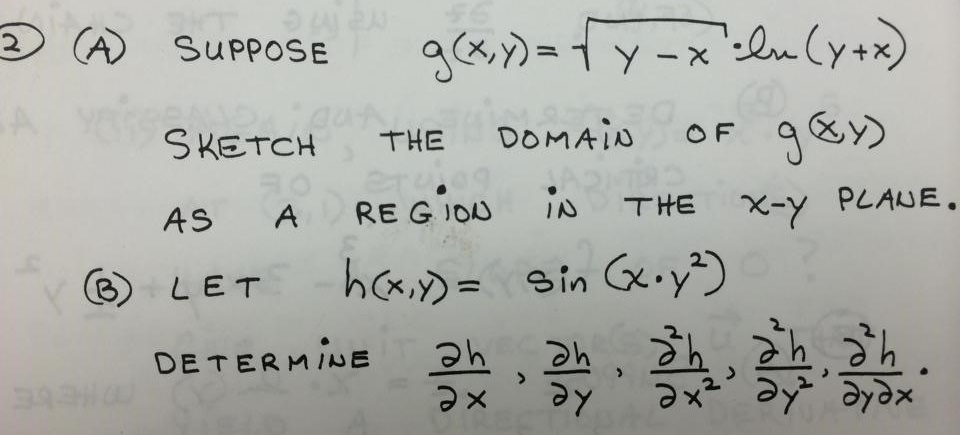 2 (A) SUPPOSE g(x,y) = √(y-x) · ln(y+x)
SKETCH THE DOMAIN OF g(x,y)
AS A REGION IN THE X-Y PLANE.
(B) LET h(x,y) = sin(x·y²)
DETERMINE ∂h/∂x, ∂h/∂y, ∂²h/∂x², ∂²h/∂y², ∂²h/∂y∂x.